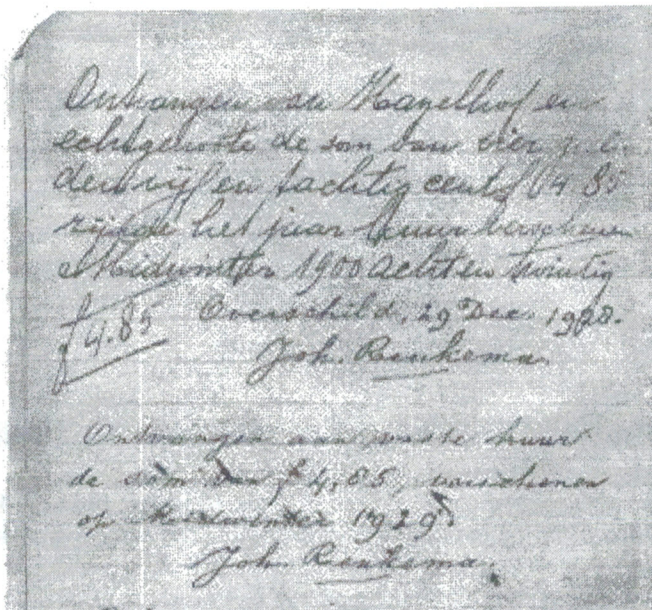 Ontvangen van Hazelhof en
echtgenoote de som van vier gul
den vijf en tachtig cents f 4 85
zijnde het jaar huur verschenen
Midwinter 1900 acht en twintig
f 4.85 Overschild, 29 Dec. 1928.
Joh. Renkema
Ontvangen aan vaste huur
de som van f 4,85, verschenen
op Midwinter 1929.
Joh. Renkema.